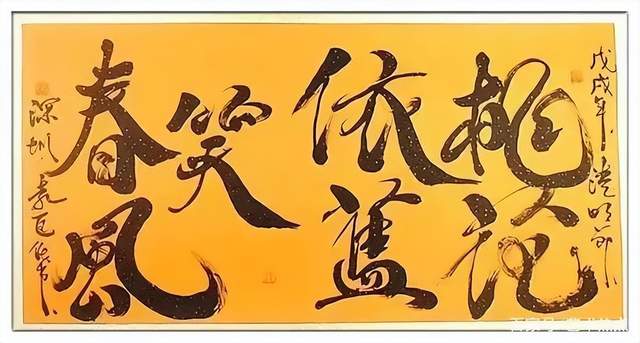 戊戌年清明節
桃花
依舊
笑
春風
深圳